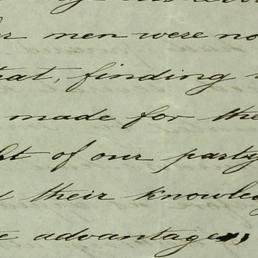 men were no
that, finding
made for the
of our party
their knowled
advantages,